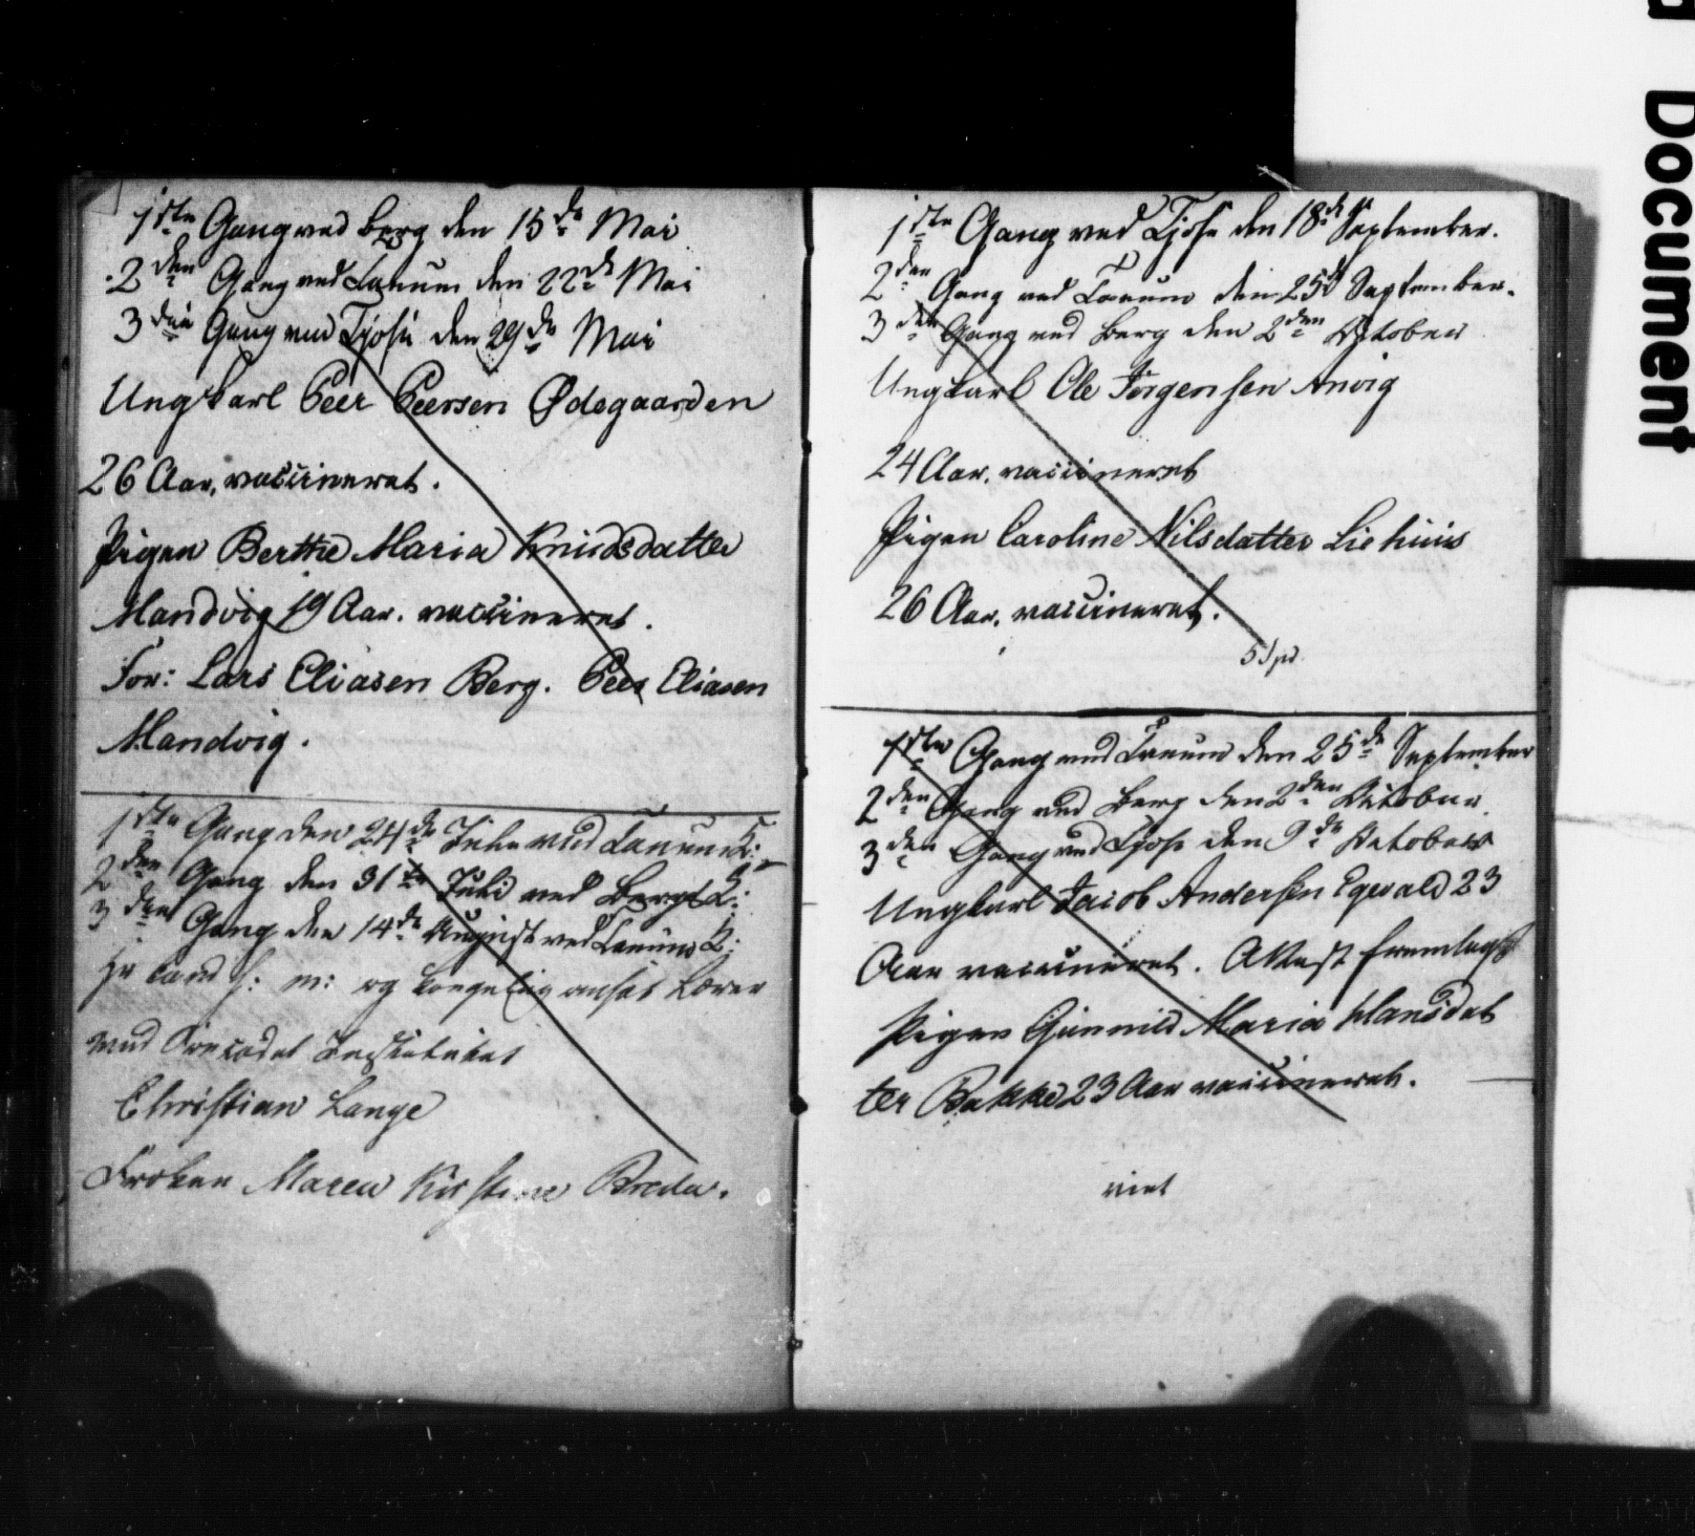 1ste Gang ved Berg den 15de Mai
2den Gang ved Tanum den 22de Mai
3die Gang ved Tjose den 29de Mai
Ungkarl Peer Peersen Ødegaarden
26 Aar, vaccineret.
Pigen Berthe Maria Knudsdatter
Mandvig 19 Aar. vaccineret.
For: Lars Eliasen Berg. Peer Eliasen
Mandvig.
1ste Gang den 24de Julii ved Tanum K:
2den Gang den 31te Julii ved Bergs K:
3den Gang den 14de August ved Tanums K:
Hr Cand og ansat Lærer
ved Institutet
Christian Lange
Frøken Maren Kirstine Breda.
1ste Gang ved Tjose den 18de September.
2den Gang ved Tanum den 25de September.
3den Gang ved Berg den 2den October
Ungkarl Ole Jørgensen Anvig
24 Aar. vaccineret
Pigen Caroline Nilsdatter Liehuus
26 Aar. vaccineret.
5 Spd.
1ste Gang ved Tanum den 25de September
2den Gang ved Berg den 2den October
3den Gang ved Tjose den 9de October
Ungkarl Jacob Andersen Egevald 23
Aar vaccineret. Attest fremlagt
Pigen Gunnild Maria Hansdat
ter Bakke 23 Aar vaccineret.
viet
Document